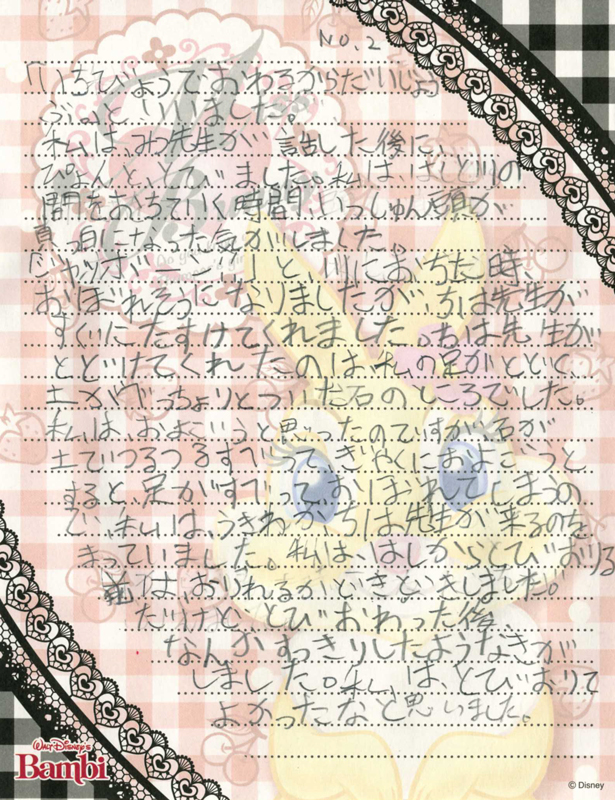 NO.2
「いちびょうでおわるからだいじょう
ぶ。」といいました。
私は、みつ先生が話した後に、
ぴょんと、とびました。私は、はしと川の
間をおちていく時間、いっしゅん頭が
真っ白になった気がしました。
「ジャッボーン」と、川におちた時、
おぼれそうになりましたが、ちば先生が
すぐにたすけてくれました。ちば先生が
とどけてくれたのは、私の足がとどく、
土がびっちょりとついた石のところでした。
私は、およごうと思ったのですが、石が
土でつるつるすべって、ぎゃくにおよごうと
すると、足がすべって、おぼれてしまうの
で、私は、うきわか、ちば先生が来るのを
まっていました。私は、はしからとびおりる
は、おりれるかどきどきしました。
だけど、とびおわった後、
なんかすっきりしたようなきが
しました。私は、とびおりて
よかったなと思いました。
WALT DISNEY'S
Bambi
© Disney